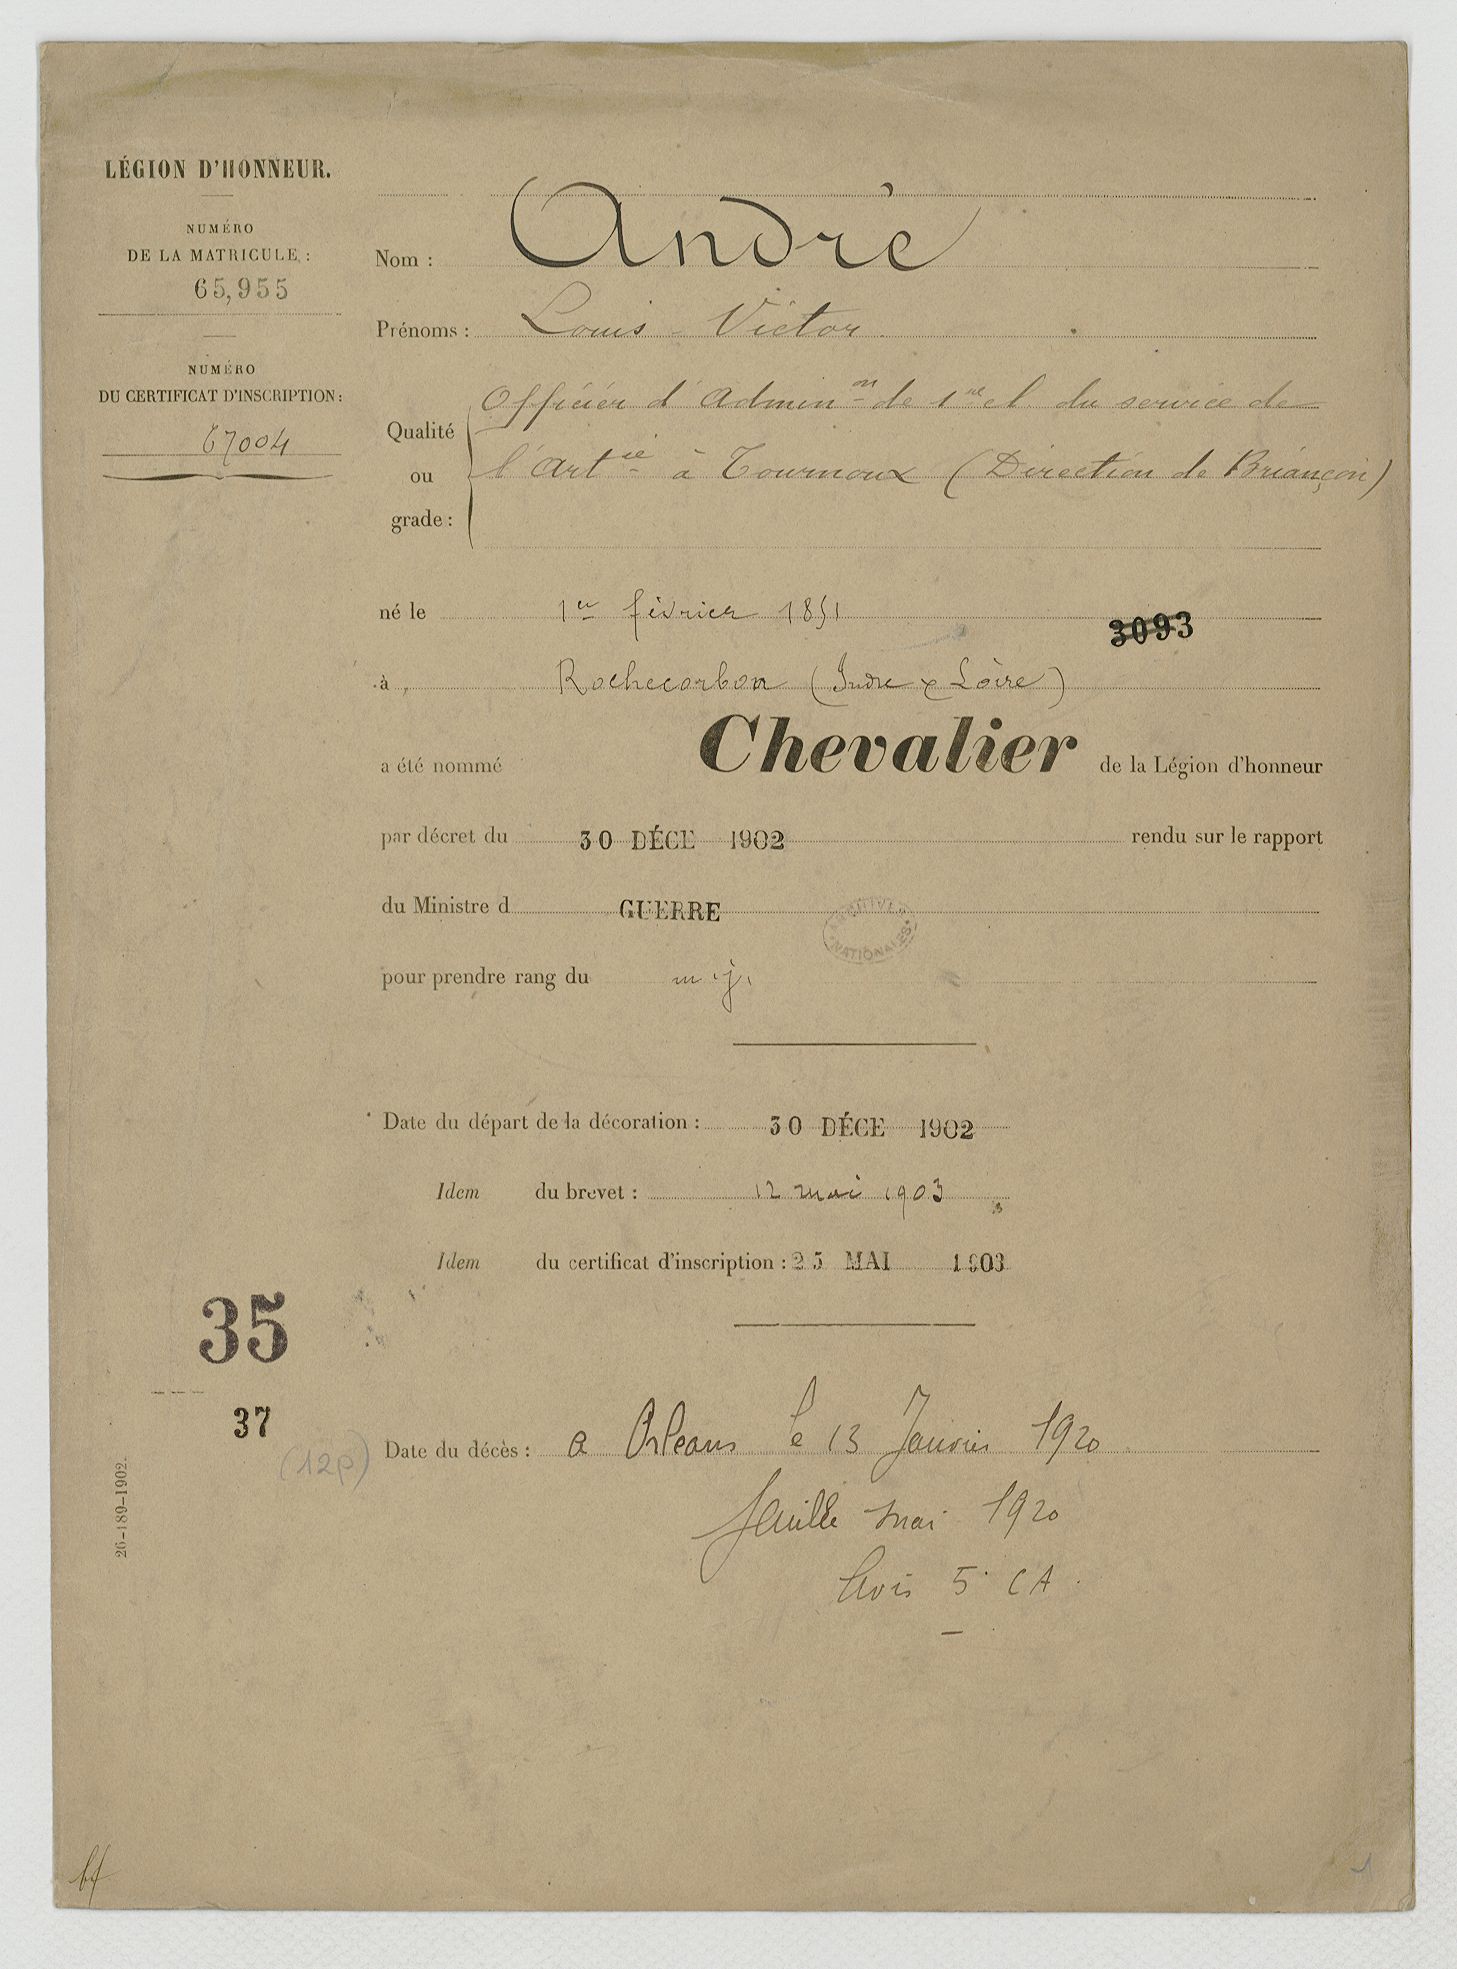 LÉGION D'HONNEUR.
NUMÉRO
DE LA MATRICULE :
65,955
NUMÉRO
DU CERTIFICAT D'INSCRIPTION :
67004
Nom : André
Prénoms : Louis-Victor
Qualité ou grade :
Officier d'Admin^on de 1^re cl. du service de
l'Art^ie à Tournoux (Direction de Briançon)
né le 1er février 1851
3093
à Rochecorbon (Indre & Loire)
a été nommé Chevalier de la Légion d'honneur
par décret du 30 DÉCE 1902 rendu sur le rapport
du Ministre d GUERRE
ARCHIVES NATIONALES
pour prendre rang du m. j.
Date du départ de la décoration : 30 DÉCE 1902
Idem du brevet : 12 mai 1903
Idem du certificat d'inscription : 25 MAI 1903
35
37
(12p)
Date du décès : a Orleans le 13 Janvier 1920
feuille mai 1920
Avis 5e CA
26-189-1902.
1